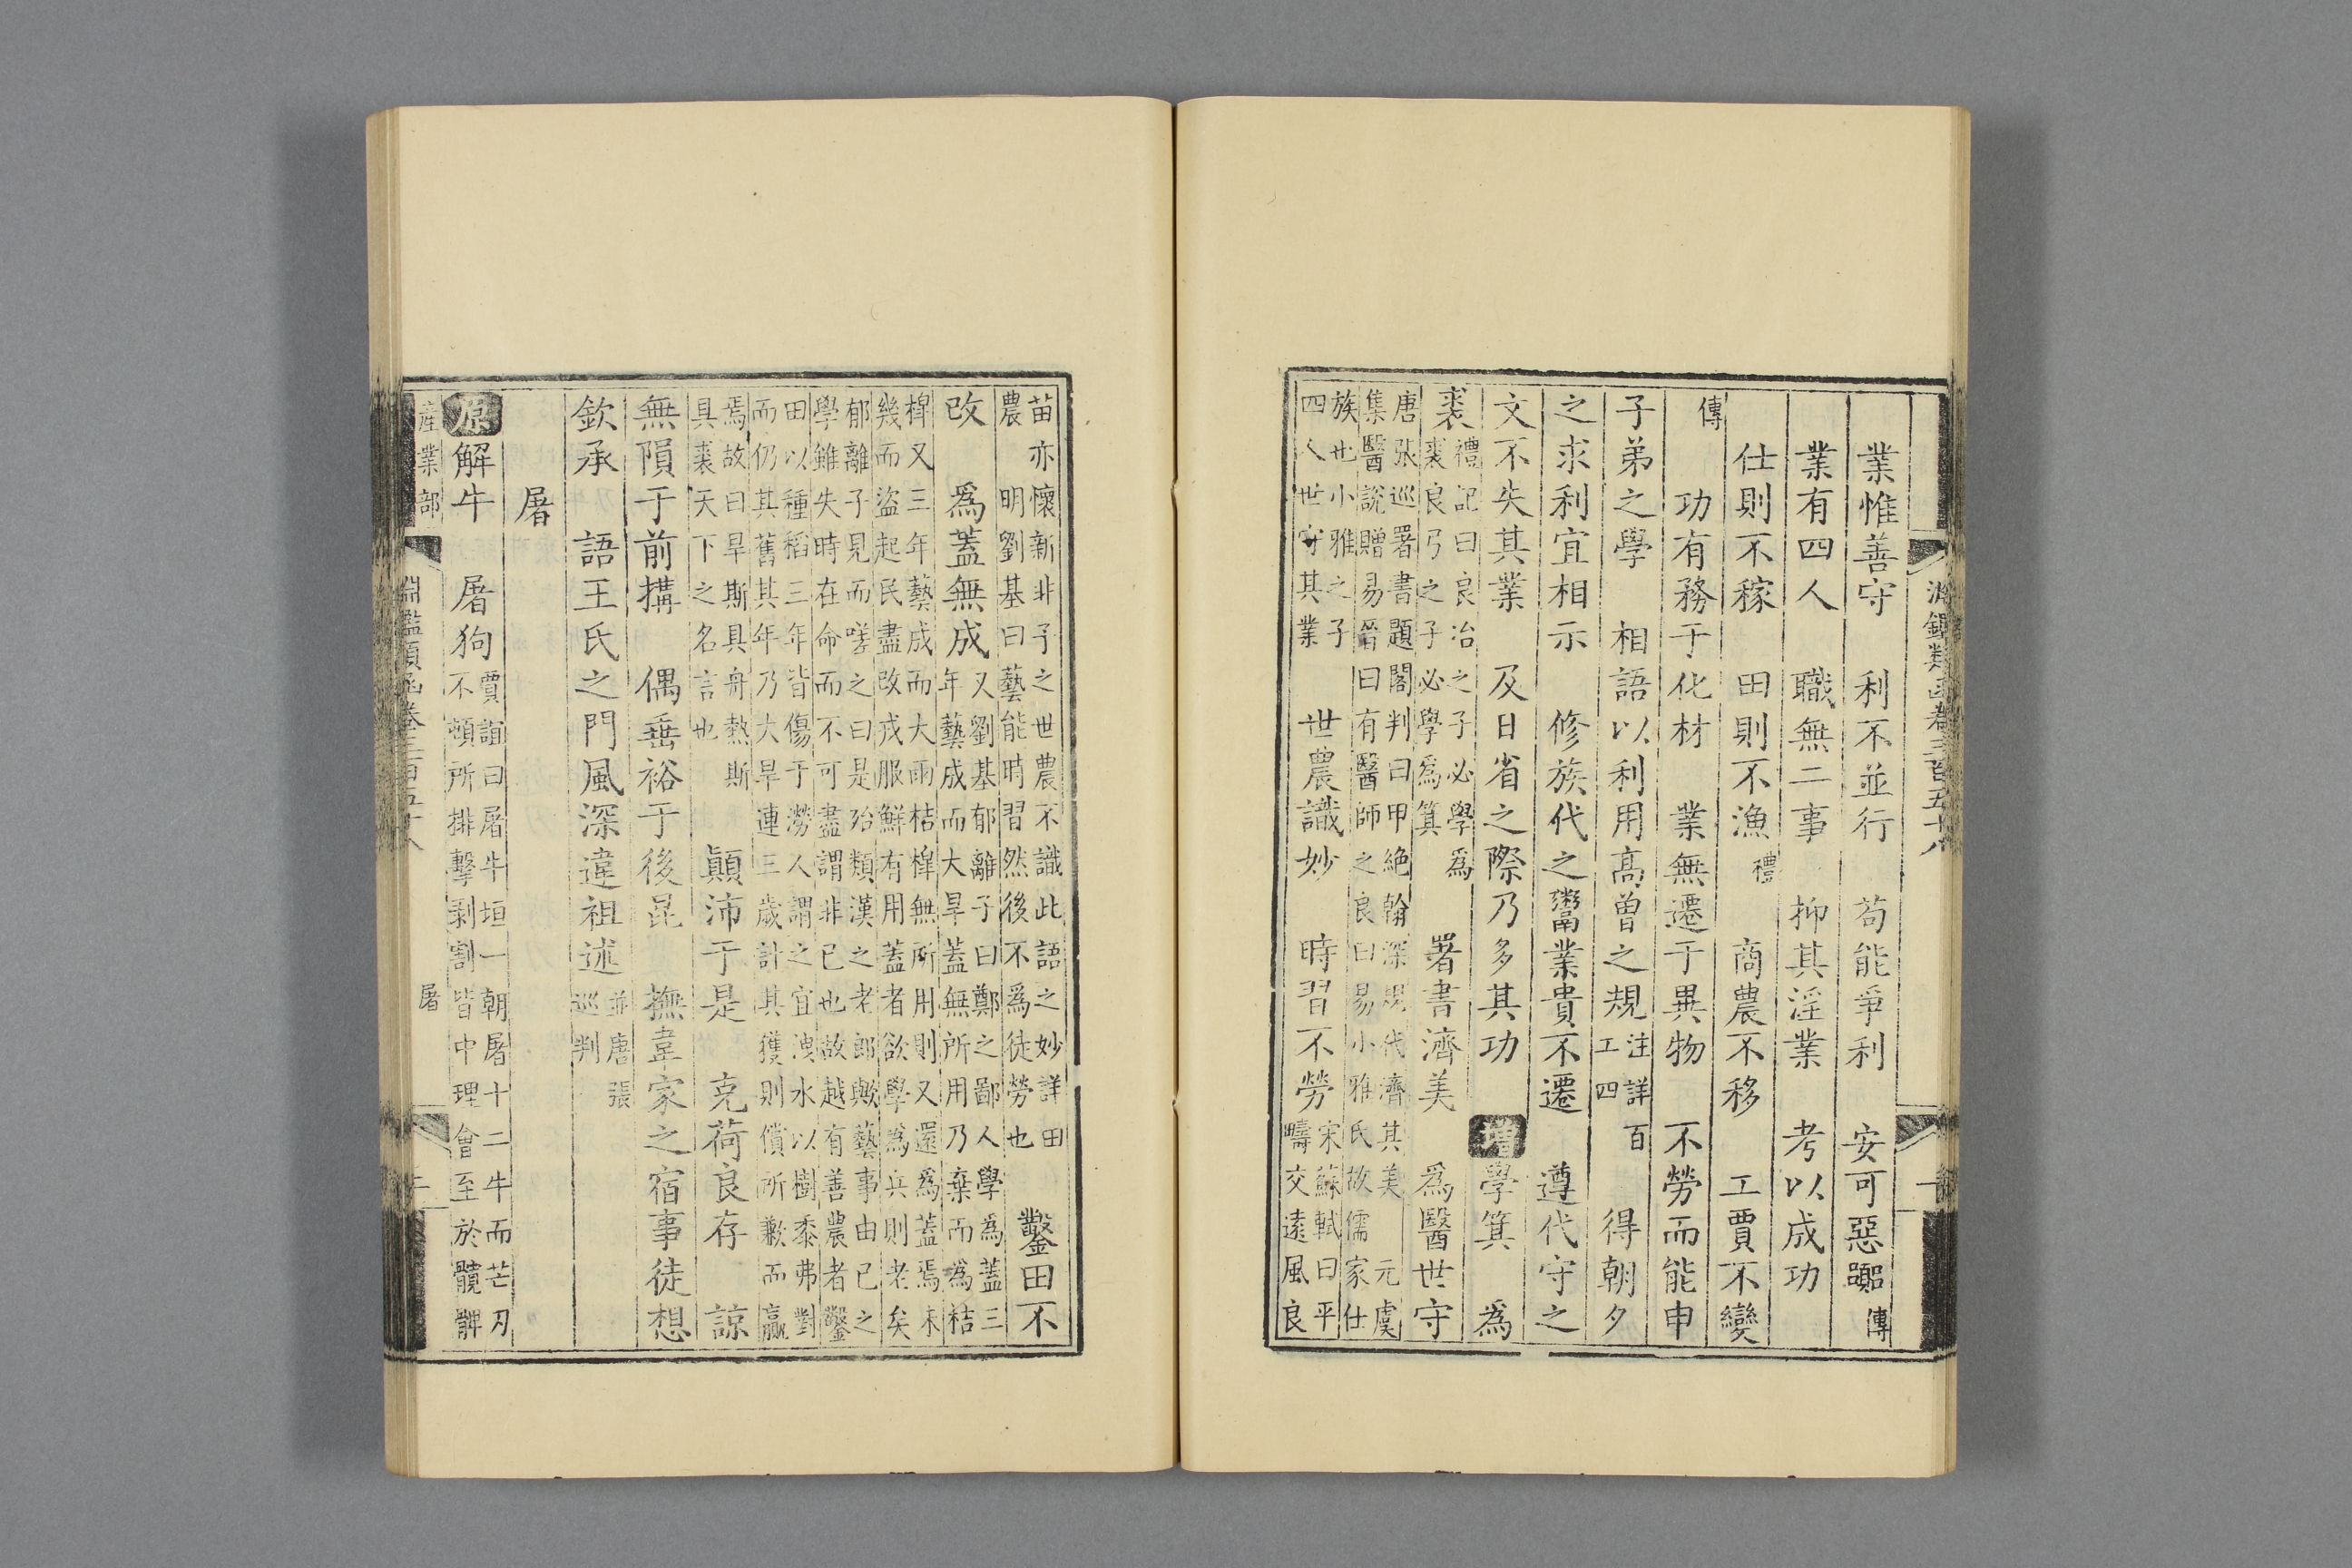 淵鑑類函卷三百五十八
業惟善守　利不並行　苟能爭利　安可惡嚻傳
業有四人　職無二事　抑其淫業　考以成功
仕則不稼　田則不漁禮　商農不移　工賈不變
傳　功有務于化材　業無遷于異物　不勞而能申
子弟之學　相語以利用高曾之規注詳百工四　得朝夕
之求利宜相示　修族代之鬻業貴不遷　遵代守之
文不失其業　及日省之際乃多其功　增學箕　為
裘禮記曰良冶之子必學為裘良弓之子必學為箕　署書濟美　為醫世守
唐張巡署書題閣判曰甲絶翰深規代濟其美　元虞
集醫説贈易晉曰有醫師之良曰易小雅氏故儒家仕
族也小雅之子四人世守其業　世農識妙　時習不勞宋蘇軾曰平疇交遠風良
苗亦懷新非子之世農不識此語之妙詳田
農　明劉基曰藝能時習然後不為徒勞也　鑿田不
改　為蓋無成又劉基郁離子曰鄭之鄙人學為蓋三年藝成而大旱蓋無所用乃棄而為桔
槹又三年藝成而大雨桔槹無所用則又還為蓋焉未
幾而盜起民盡改戎服鮮有用蓋者欲學為兵則老矣
郁離子見而嗟之曰是殆類漢之老郎歟藝事由己之
學雖失時在命而不可盡謂非己也故越有善農者鑿
田以種稻三年皆傷于澇人謂之宜洩水以樹黍弗對
而仍其舊其年乃大旱連三歲計其獲則償所歉而贏
焉故曰旱斯具舟熱斯具裘天下之名言也　顛沛于是　克荷良存　諒
無隕于前搆　偶垂裕于後昆　撫韋家之宿事徒想
欽承　語王氏之門風深違祖述並唐張巡判
屠
原解牛　屠狗賈誼曰屠牛垣一朝屠十二牛而芒刃不頓所排擊剥割皆中理會至於髖髀
產業部　淵鑑類函卷三百五十八　屠